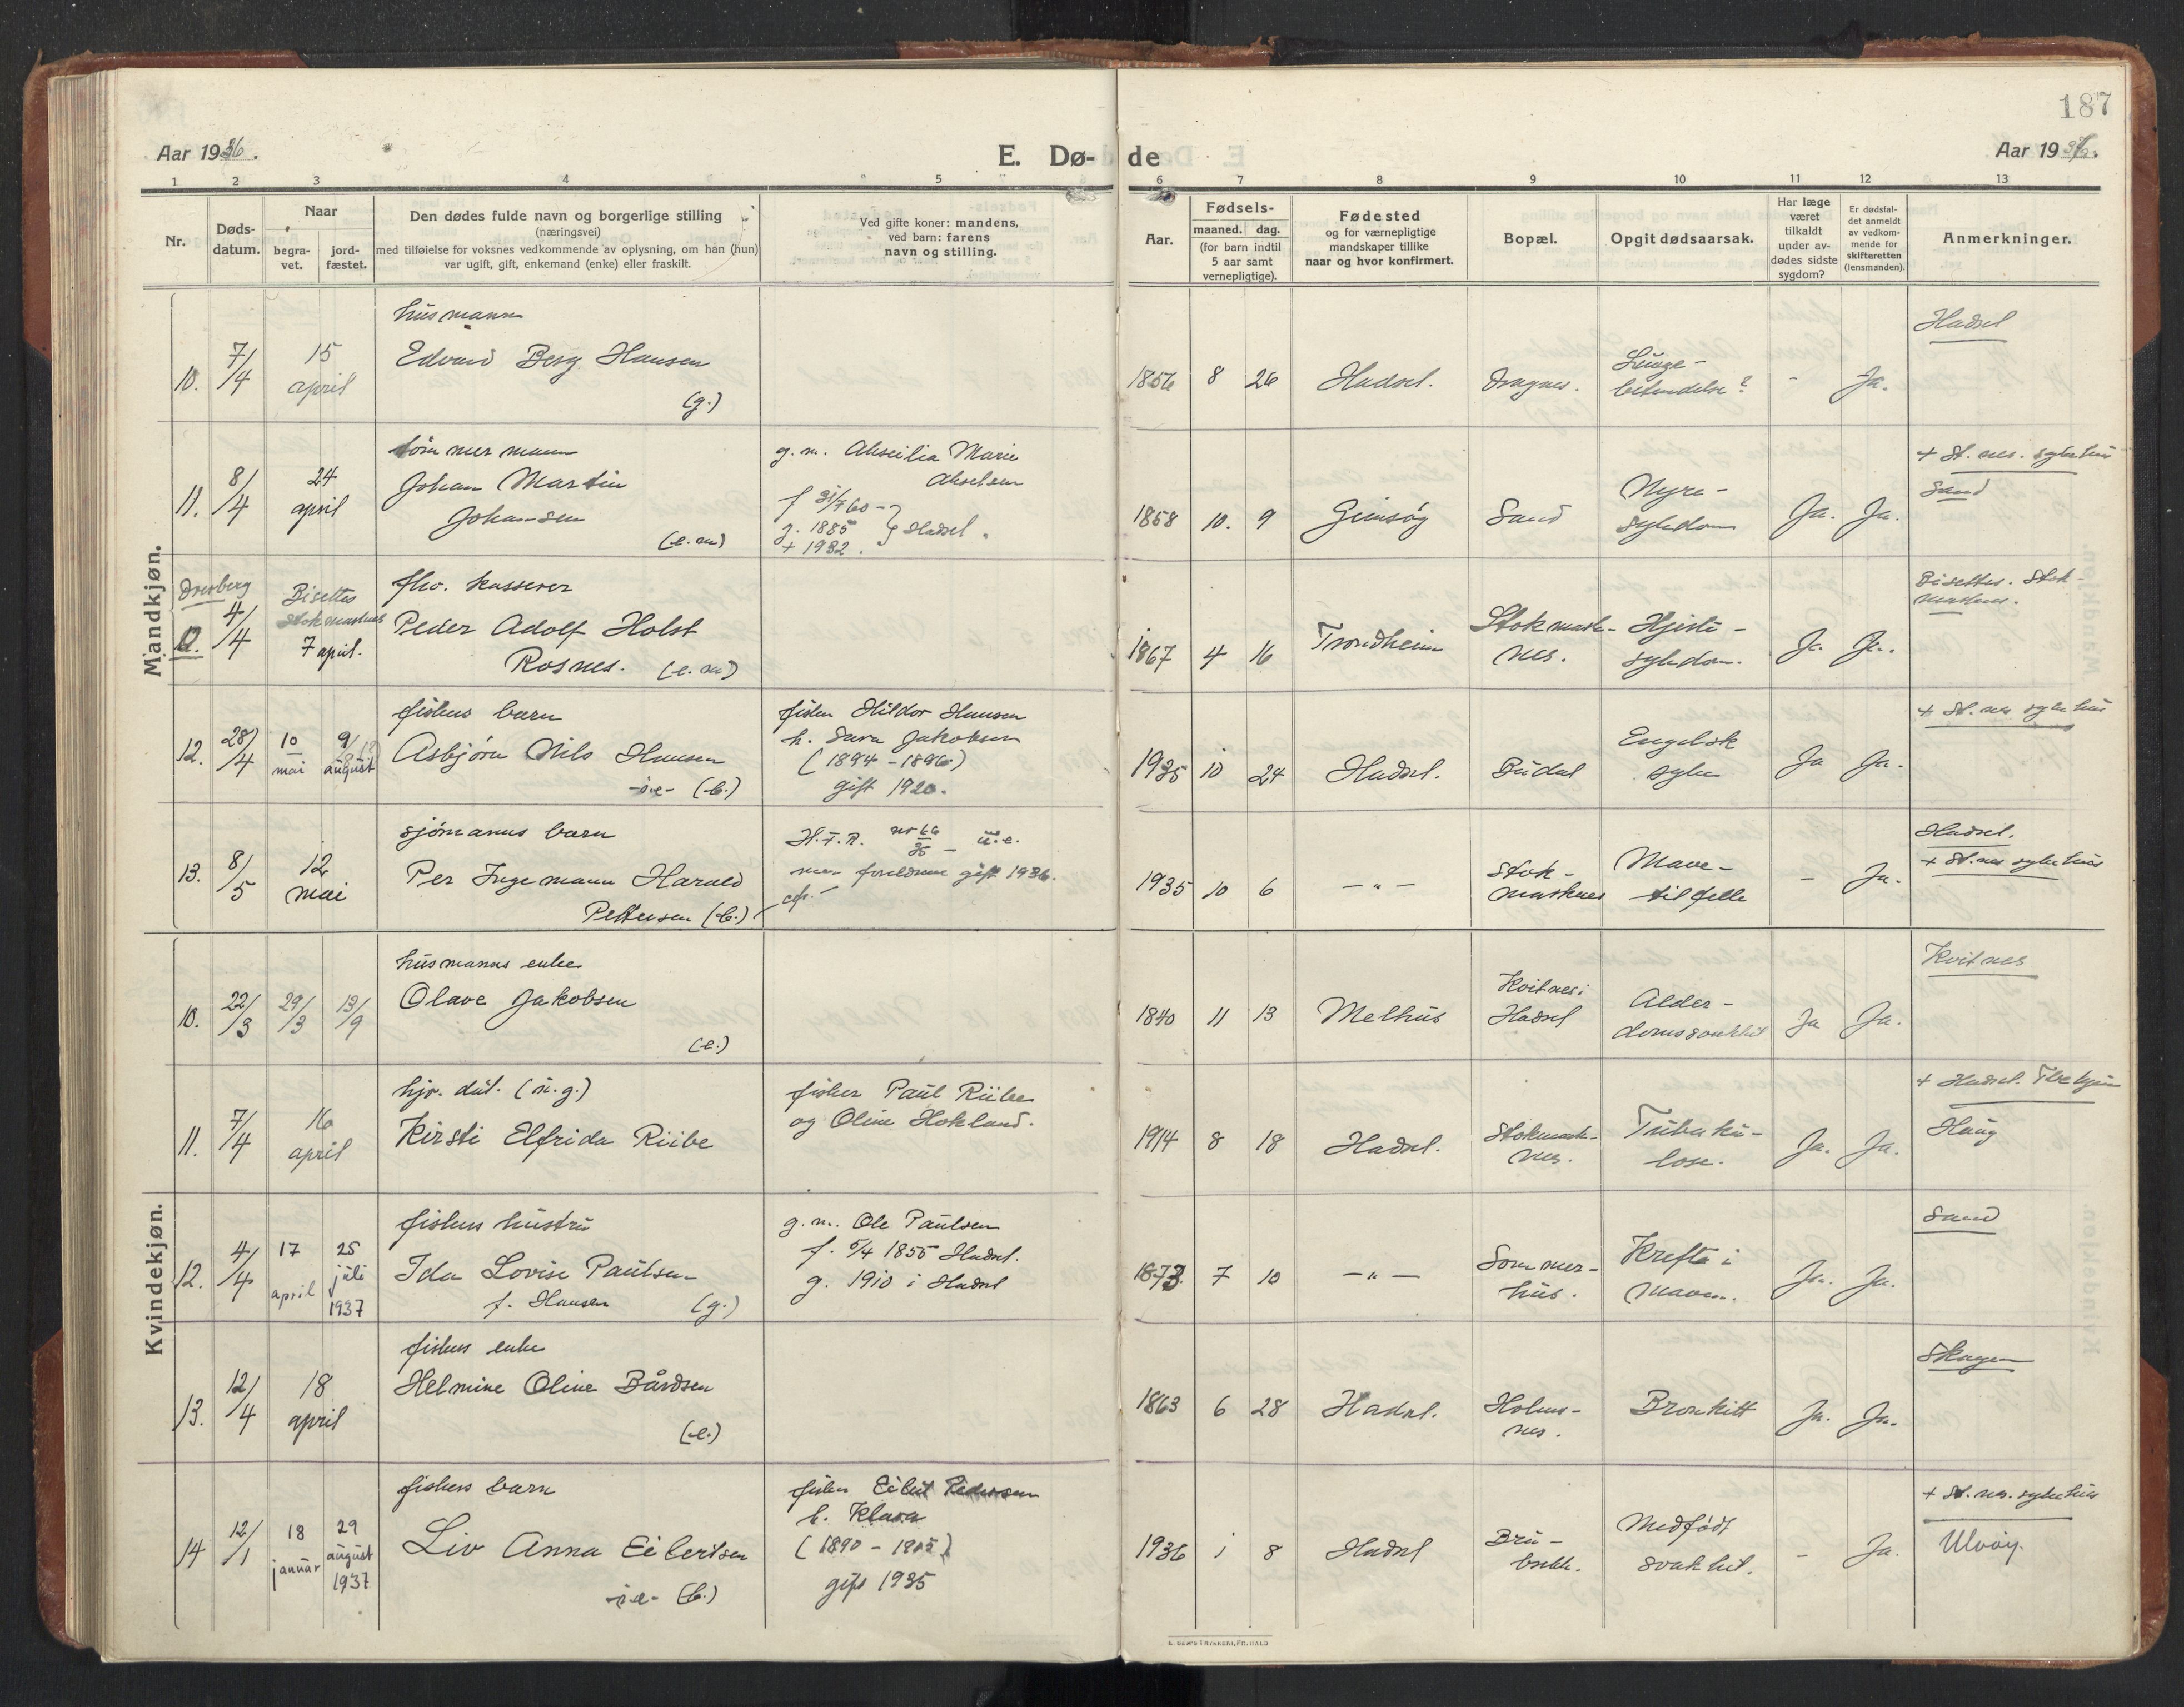 187
Aar 1936.
E. Dø-
de
Aar 1936.
1 2 3 4 5 6 7 8 9 10 11 12 13
Nr.
Døds-
datum.
Naar
begra-
vet.
jord-
fæstet.
Den dødes fulde navn og borgerlige stilling
(næringsvei)
med tilføielse for voksnes vedkommende av oplysning, om han (hun)
var ugift, gift, enkemand (enke) eller fraskilt.
Ved gifte koner: mandens,
ved barn: farens
navn og stilling.
Aar.
Fødsels-
maaned. dag.
(for barn indtil
5 aar samt
vernepligtige).
Fødested
og for værnepligtige
mandskaper tillike
naar og hvor konfirmert.
Bopæl.
Opgit dødsaarsak.
Har læge
været
tilkaldt
under av-
dødes sidste
sygdom?
Er dødsfal-
det anmeldt
av vedkom-
mende for
skifteretten
(lensmanden).
Anmerkninger.
Mandkjøn.
10.
7/4
15
april
husmann
Edvard Berg Hansen
(g.)
1856
8
26
Hadsel.
Lunge-
betendelse?
-
Ja.
Hadsel
11.
8/4
24
april
tømmermann
Johan Martin
Johansen
(e.m)
g. m. Marie
f 31/7 60
g. 1885
+ 1932.
} Hadsel.
1858
10.
9
Gimsøy
Sand
Nyre-
sykdom
Ja.
Ja.
+ St. nes. sykehus
Sand
12.
4/4
Bisettes
Stokmarknes
7 april.
fhv. kasserer
Peder Adolf Holst
Rosnes. (e.m)
1867
4
16
Trondheim
Stokmark-
nes.
Hjerte-
sykdom.
Ja
Ja.
Bisettes. Stok-
marknes.
12.
28/4
10
mai
9/
august
fiskers barn
Asbjørn Nils Hansen
-i.e- (b.)
fisker Hildor Hansen
h. Sara Jakobsen
(1894 - 1896)
gift 1920.
1935
10
24
Hadsel.
Budal
Engelsk
syke
Ja
Ja.
+ St. nes sykehus
13.
8/5
12
mai
sjømanns barn
Per Ingemann Harald
Pettersen (b.)
H.F.R. u.e.
men foreldrene gift 1936.
1935
10
6
-"-
Stok-
marknes
Mave-
tilfelle
-
Ja.
Hadsel.
+ St. nes sykehus
Kvindekjøn.
10.
22/3
29/3
13/9
husmanns enke
Olave Jakobsen
(e.)
1840
11
13
Melhus
Kvitnes i
Hadsel
Alder-
domssvakhet
Ja
Ja.
Kvitnes
11.
7/4
16
april
hjv. dat. (u.g.)
Kirsti Elfrida Riibe
fisker Paul Riibe
og Oline Hokland.
1914
8
18
Hadsel.
Stokmark-
nes.
Tuberku-
lose.
Ja.
Ja.
+ Hadsel. Tbc hjem
Haug
12.
4/4
17
april
25
juli
1937
fiskers hustru
Ida Lovise Paulsen
f. Hansen (g.)
g. m. Ole Paulsen
f. 5/4 1855 Hadsel.
g. 1910 i Hadsel
1873
7
10
-"-
Sommer-
hus.
Kreft i
Maven.
Ja.
Ja.
Sand
13.
12/4
18
april
fiskers enke
Helmine Oline Bårdsen
(e.)
1863
6
28
Hadsel.
Holms-
nes.
Bronkitt
Ja.
Ja.
Skagen
14
12/1
18
januar
29
august
1937
fiskers barn
Liv Anna Eibertsen
-i.e- (b.)
fisker Eibert Pedersen
h. Klara
(1890 - 1905)
gift 1935
1936
1
8
Hadsel
Bru-
brekk.
Medfødt
svakhet.
-
Ja.
+ St. nes. sykehus
Ulvøy.